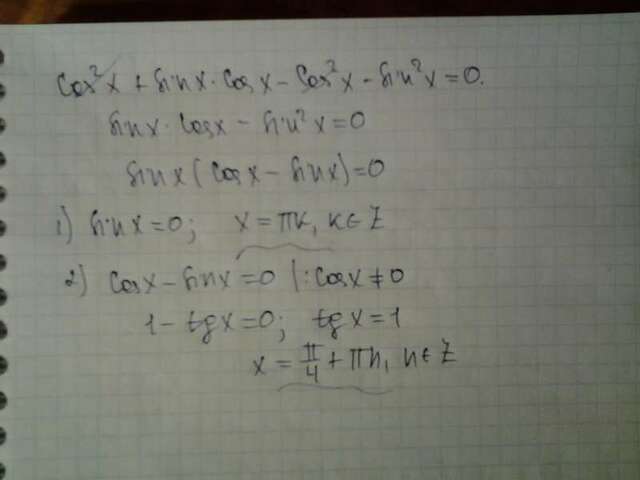 cos²x + sinx·cosx - cos²x - sin²x = 0.
sinx·cosx - sin²x = 0
sinx(cosx - sinx) = 0
1) sinx = 0; x = πk, k ∈ Z
2) cosx - sinx = 0 |:cosx ≠ 0
1 - tgx = 0; tgx = 1
x = π/4 + πn, n ∈ Z